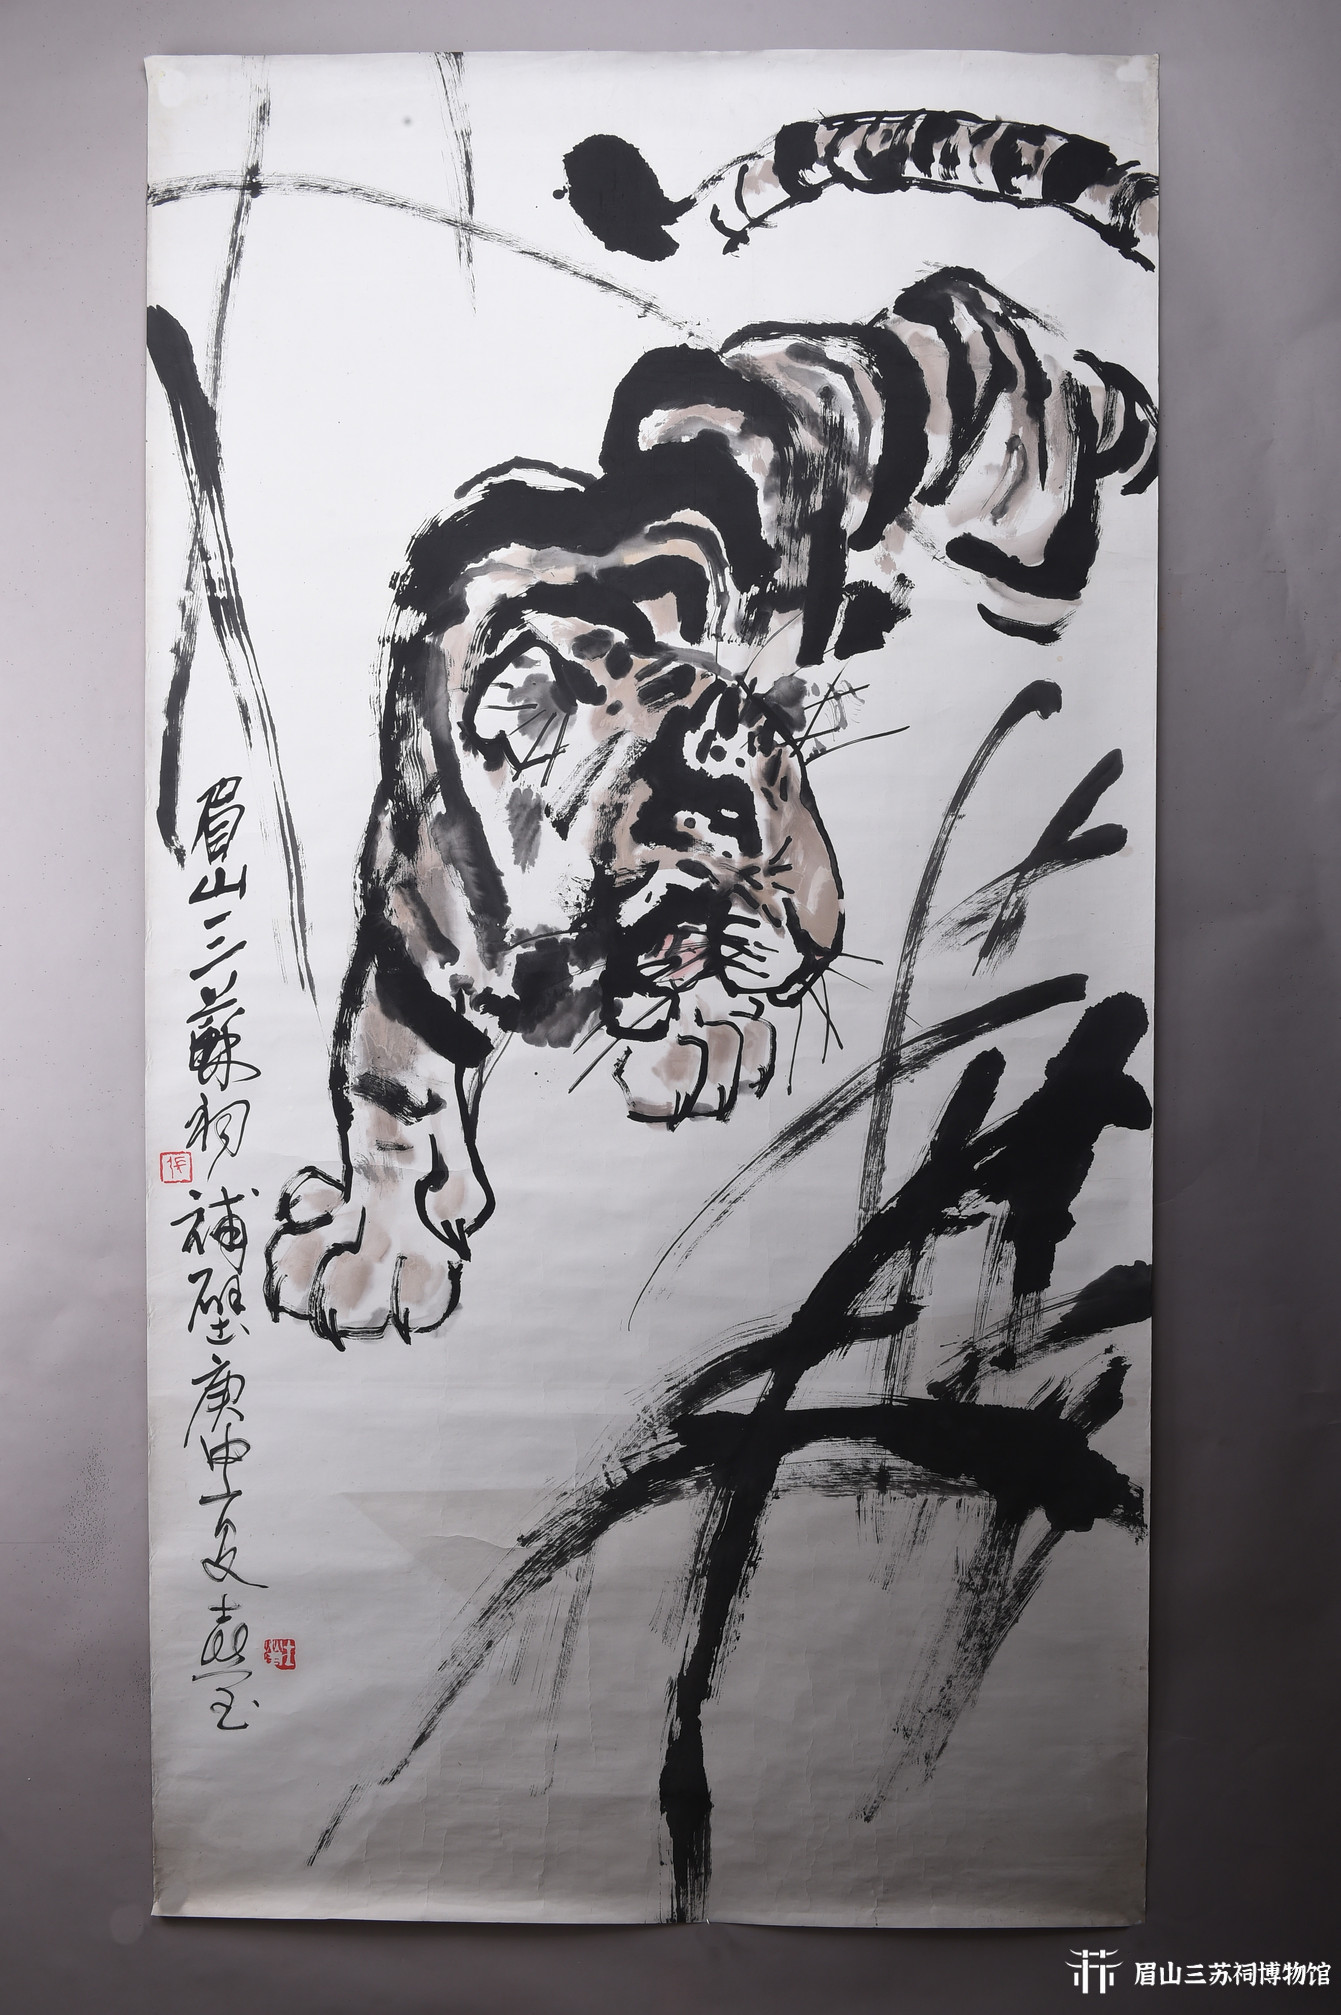 眉山三蘇祠補壁庚申夏
眉山三苏祠博物馆